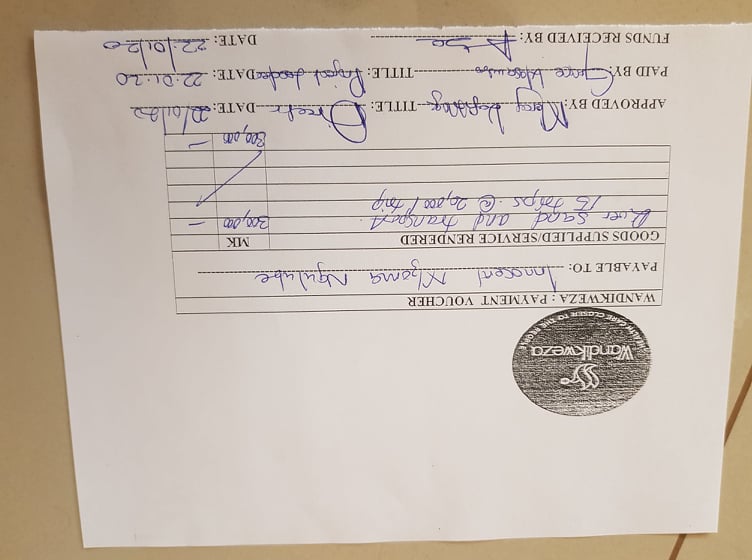 Wandikweza
HEALTH CARE CLOSER TO THE PEOPLE
WANDIKWEZA : PAYMENT VOUCHER
PAYABLE TO: Innocent Mzama Ngulube
GOODS SUPPLIED/SERVICE RENDERED MK
River sand and transport. 300,000 —
15 trips @ 20,000/trip
300,000 —
APPROVED BY: Mercy TITLE: Director DATE: 22/01/20
PAID BY: Grace TITLE: Project leader DATE: 22.01.20
FUNDS RECEIVED BY: DATE: 22/01/20